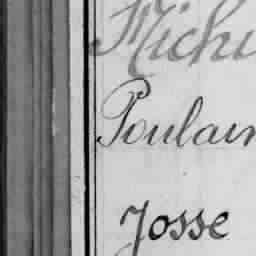 Michi
Poulain
Josse